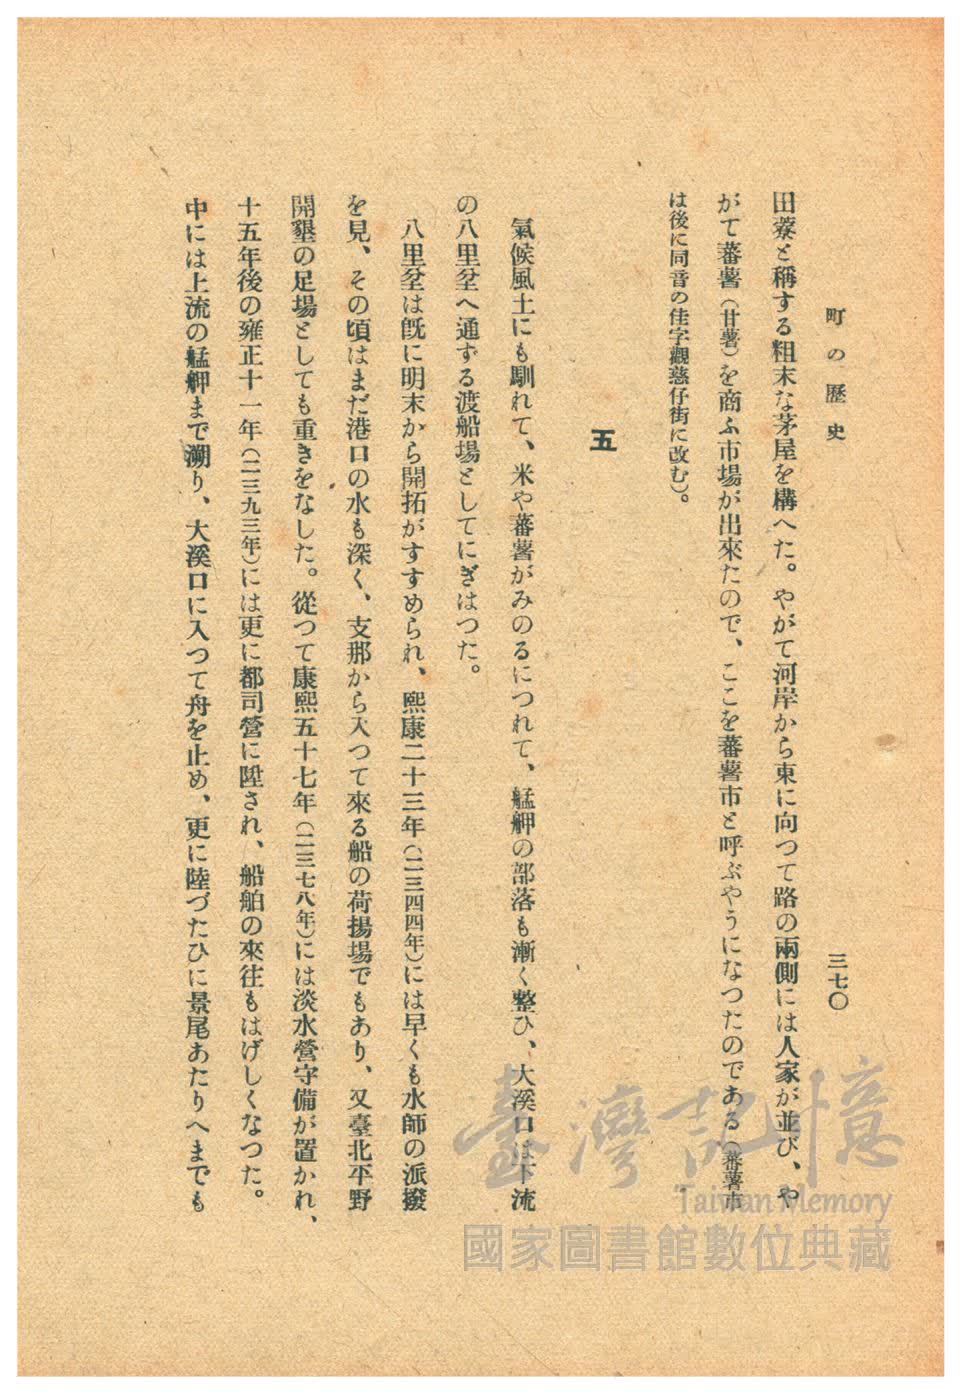 町の歴史
三七〇
田藔と稱する粗末な茅屋を構へた。やがて河岸から東に向つて路の兩側には人家が並び、や
がて蕃薯（甘薯）を商ふ市場が出來たので、ここを蕃薯市と呼ぶやうになつたのである（蕃薯市
は後に同音の佳字觀慈仔街に改む）。
五
氣候風土にも馴れて、米や蕃薯がみのるにつれて、艋舺の部落も漸く整ひ、大溪口は下流
の八里坌へ通ずる渡船場としてにぎはつた。
八里坌は既に明末から開拓がすすめられ、熙康二十三年（二三四四年）には早くも水師の派撥
を見、その頃はまだ港口の水も深く、支那から入つて來る船の荷揚場でもあり、又臺北平野
開墾の足場としても重きをなした。從つて康熙五十七年（二三七八年）には淡水營守備が置かれ、
十五年後の雍正十一年（二三九三年）には更に都司營に陞され、船舶の來往もはげしくなつた。
中には上流の艋舺まで溯り、大溪口に入つて舟を止め、更に陸づたひに景尾あたりへまでも
臺灣記憶
Taiwan Memory
國家圖書館數位典藏